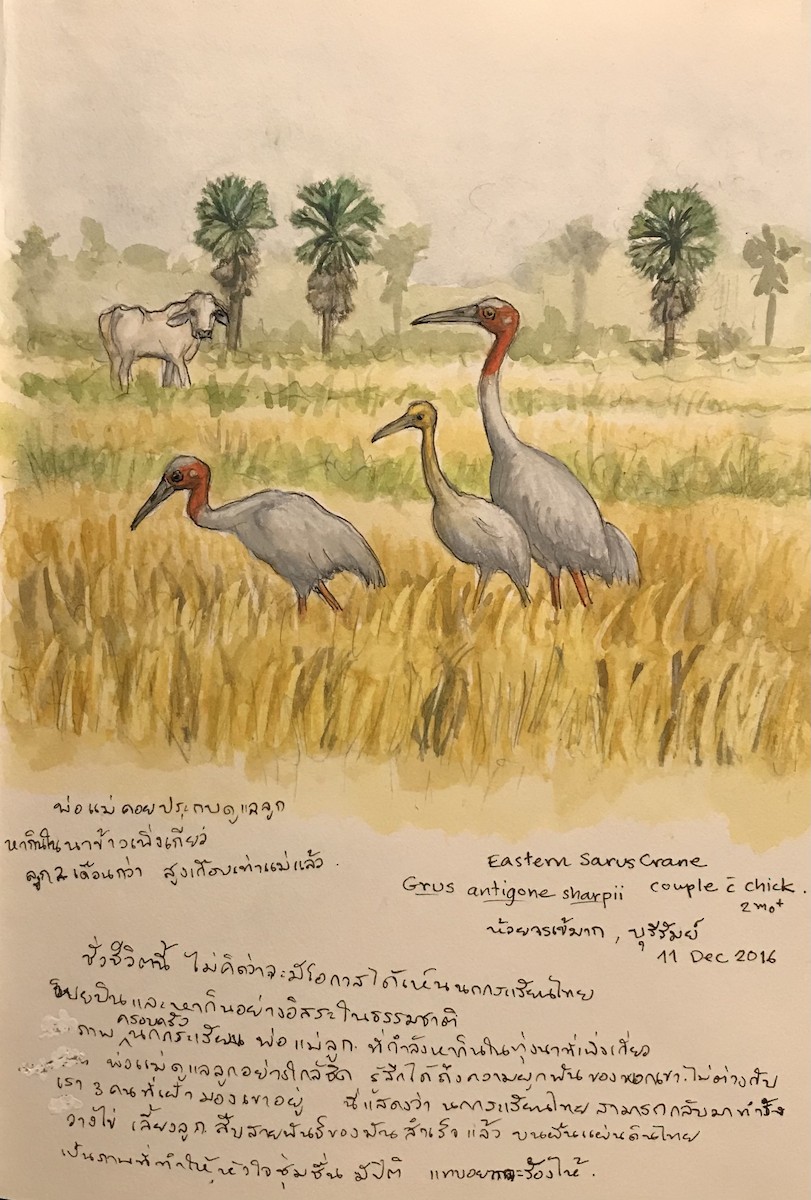 พ่อแม่คอยประกบดูแลลูก
หากินในนาข้าวเพิ่งเกี่ยว
ลูก 2 เดือนกว่า สูงเกือบเท่าแม่แล้ว.
Eastern Sarus Crane
Grus antigone sharpii couple c̄ chick.
2 mo+
ห้วยจรเข้มาก, บุรีรัมย์
11 Dec 2016
ชั่วชีวิตนี้ ไม่คิดว่าจะมีโอกาสได้เห็นนกกระเรียนไทย
โบยบินและหากินอย่างอิสระในธรรมชาติ
ภาพครอบครัวนกกระเรียน พ่อ แม่ ลูก. ที่กำลังหากินในทุ่งนาที่เพิ่งเกี่ยว
พ่อแม่ดูแลลูกอย่างใกล้ชิด รู้สึกได้ถึงความผูกพันของพวกเขา. ไม่ต่างกับ
เรา 3 คนที่เฝ้ามองเขาอยู่ นี่แสดงว่า นกกระเรียนไทยสามารถกลับมาทำรัง
วางไข่ เลี้ยงลูก สืบสายพันธุ์ของมันสำเร็จแล้ว บนผืนแผ่นดินไทย
เป็นภาพที่ทำให้หัวใจชุ่มชื่น มีปิติ แทบอยากจะร้องไห้.